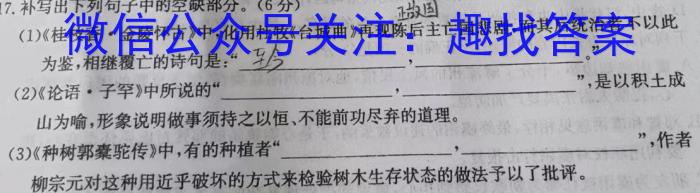 17.补写出下列句子中的空缺部分。(6分)
微信公众号关注：趣找答案
(1)《桂枝香·金陵怀古》中,化用杜牧《台城曲》再现陈后主亡国悲剧,其后统治者不以此
为鉴,相继覆亡的诗句是:“ , ”
(2)《论语·子罕》中所说的“ , ”,是以积土成
山为喻,形象说明做事须持之以恒、不能前功尽弃的道理。
(3)《种树郭橐驼传》中,有的种植者“ , ”,作者
柳宗元对这种用近乎破坏的方式来检验树木生存状态的做法予以了批评。